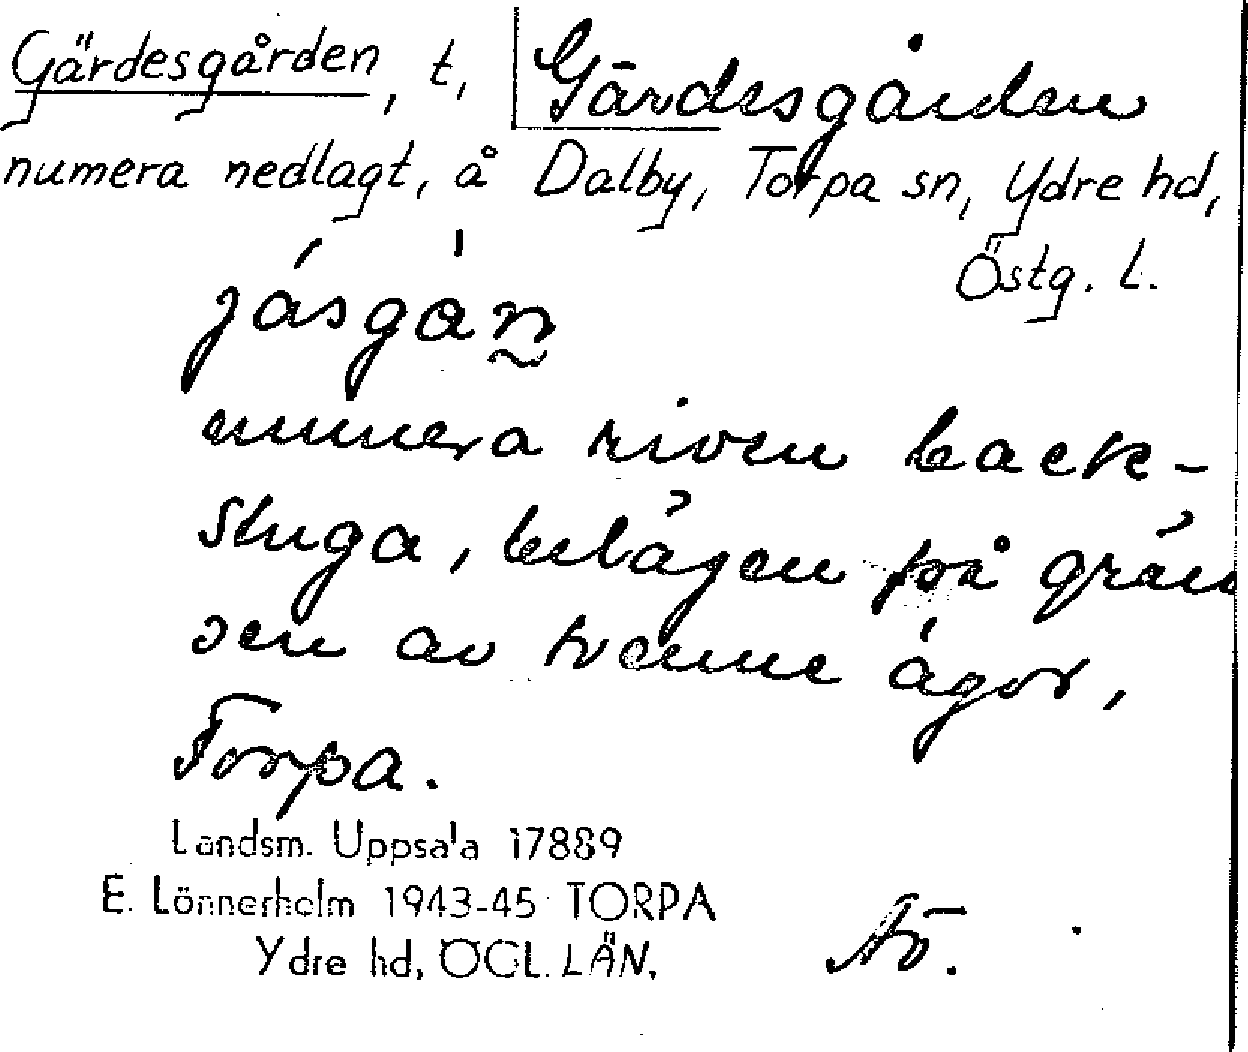 Gärdesgården, t, Gärdesgården
numera nedlagt, å Dalby, Torpa sn, Ydre hd,
Östg. l.
jásgàn
numera riven back-
stuga, belägen på grän
sen av tvenne ägor,
Torpa.
Landsm. Uppsala 17889
E. Lönnerholm 1943-45 TORPA
Ydre hd, ÖGL. LÄN.